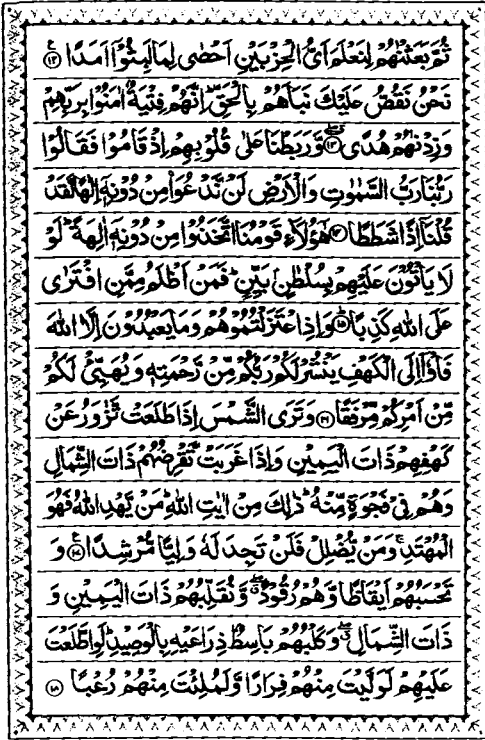 ثُمَّ بَعَثْنٰهُمْ لِنَعْلَمَ اَىُّ الْحِزْبَيْنِ اَحْصٰى لِمَا لَبِثُوْۤا اَمَدًا ﴿۱۲﴾
نَحْنُ نَقُصُّ عَلَيْكَ نَبَاَهُمْ بِالْحَقِّ ؕ اِنَّهُمْ فِتْيَةٌ اٰمَنُوْا بِرَبِّهِمْ
وَزِدْنٰهُمْ هُدًى ﴿۱۳﴾ وَّرَبَطْنَا عَلٰى قُلُوْبِهِمْ اِذْ قَامُوْا فَقَالُوْا
رَبُّنَا رَبُّ السَّمٰوٰتِ وَالْاَرْضِ لَنْ نَّدْعُوَا۟ مِنْ دُوْنِهٖۤ اِلٰهًا لَّقَدْ
قُلْنَاۤ اِذًا شَطَطًا ﴿۱۴﴾ هٰۤؤُلَآءِ قَوْمُنَا اتَّخَذُوْا مِنْ دُوْنِهٖۤ اٰلِهَةً ؕ لَوْ
لَا يَاْتُوْنَ عَلَيْهِمْ بِسُلْطٰنٍۭ بَيِّنٍ ؕ فَمَنْ اَظْلَمُ مِمَّنِ افْتَرٰى
عَلَى اللّٰهِ كَذِبًا ﴿۱۵﴾ وَاِذِ اعْتَزَلْتُمُوْهُمْ وَمَا يَعْبُدُوْنَ اِلَّا اللّٰهَ
فَاْوٗۤا اِلَى الْكَهْفِ يَنْشُرْ لَكُمْ رَبُّكُمْ مِّنْ رَّحْمَتِهٖ وَيُهَيِّئْ لَكُمْ
مِّنْ اَمْرِكُمْ مِّرْفَقًا ﴿۱۶﴾ وَتَرَى الشَّمْسَ اِذَا طَلَعَتْ تَّزٰوَرُ عَنْ
كَهْفِهِمْ ذَاتَ الْيَمِيْنِ وَاِذَا غَرَبَتْ تَّقْرِضُهُمْ ذَاتَ الشِّمَالِ
وَهُمْ فِىْ فَجْوَةٍ مِّنْهُ ؕ ذٰلِكَ مِنْ اٰيٰتِ اللّٰهِ ؕ مَنْ يَّهْدِ اللّٰهُ فَهُوَ
الْمُهْتَدِ ۚ وَمَنْ يُّضْلِلْ فَلَنْ تَجِدَ لَهٗ وَلِيًّا مُّرْشِدًا ﴿۱۷﴾ وَ
تَحْسَبُهُمْ اَيْقَاظًا وَّهُمْ رُقُوْدٌ ۖ وَّنُقَلِّبُهُمْ ذَاتَ الْيَمِيْنِ وَ
ذَاتَ الشِّمَالِ ۖ وَكَلْبُهُمْ بَاسِطٌ ذِرَاعَيْهِ بِالْوَصِيْدِ ؕ لَوِ اطَّلَعْتَ
عَلَيْهِمْ لَوَلَّيْتَ مِنْهُمْ فِرَارًا وَّلَمُلِئْتَ مِنْهُمْ رُعْبًا ﴿۱۸﴾